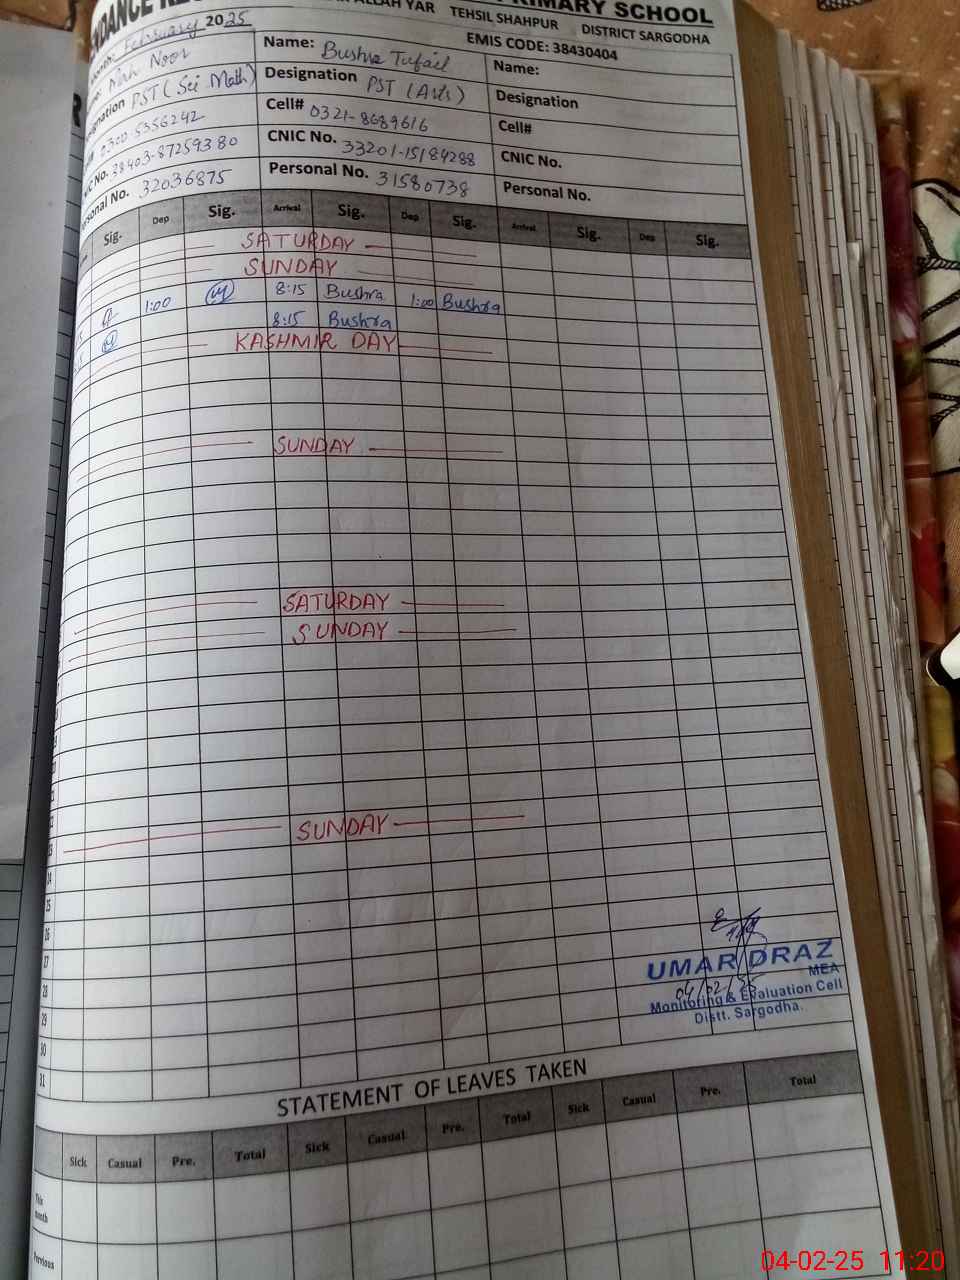 PRIMARY SCHOOL
ALLAH YAR TEHSIL SHAHPUR DISTRICT SARGODHA
EMIS CODE: 38430404
Month: February 2025
Mah Noor Name: Bushra Tufail Name:
Designation PST (Sci Math) Designation PST (Arts) Designation
0300-5356242 Cell# 0321-8689616 Cell#
CNIC No. 38403-87259380 CNIC No. 33201-15184288 CNIC No.
Personal No. 32036875 Personal No. 31580738 Personal No.
Sig. Dep Sig. Arrival Sig. Dep Sig. Arrival Sig. Dep Sig.
SATURDAY
SUNDAY
1:00 8:15 Bushra 1:00 Bushra
8:15 Bushra
KASHMIR DAY
SUNDAY
SATURDAY
SUNDAY
SUNDAY
23
24
25
26
27
28
29
30
31
UMAR DRAZ
MEA
04/02/25
Monitoring & Evaluation Cell
Distt. Sargodha.
STATEMENT OF LEAVES TAKEN
Sick Casual Pre. Total Sick Casual Pre. Total Sick Casual Pre. Total
This month
Previous
04-02-25 11:20